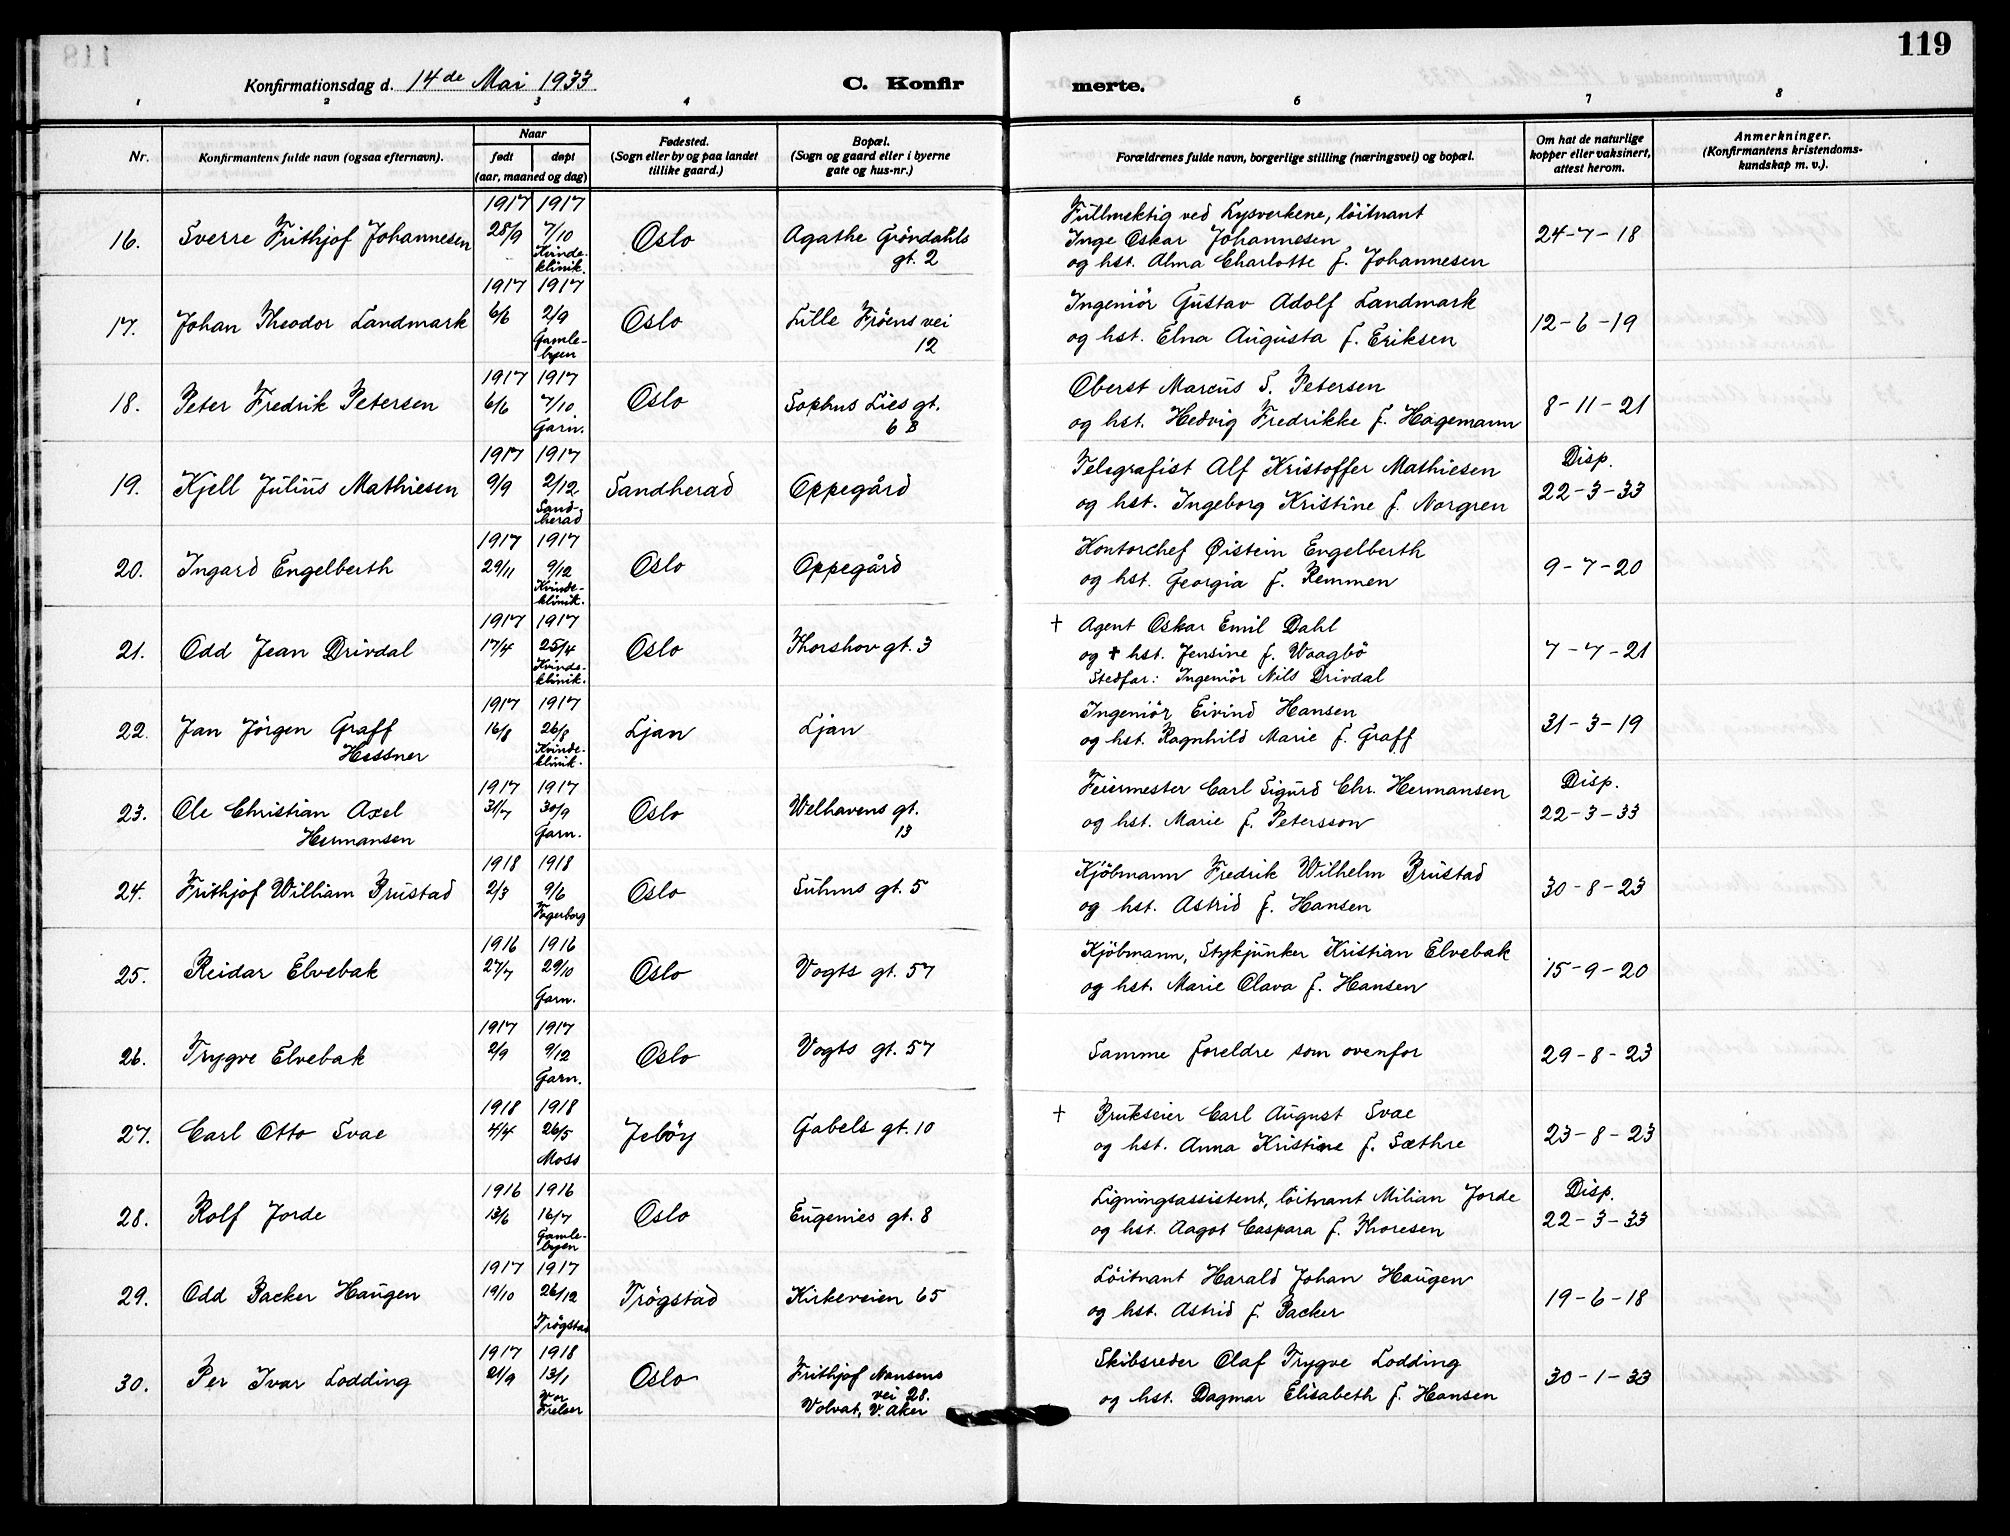 119
Konfirmationsdag d. 14de Mai 1933. C. Konfirmerte.
1 2 3 4 6 7 8
Nr. Konfirmantens fulde navn (ogsaa efternavn). Naar født døpt (aar, maaned og dag) Fødested. (Sogn eller by og paa landet tillike gaard.) Bopæl. (Sogn og gaard eller i byerne gate og hus-nr.) Forældrenes fulde navn, borgerlige stilling (næringsvei) og bopæl. Om hat de naturlige kopper eller vaksinert, attest herom. Anmerkninger. (Konfirmantens kristendomskundskap m. v.).
16. Sverre Frithjof Johannesen 1917 28/9 1917 7/10 Kvindeklinik. Oslo Agathe Gröndahls gt. 2 Fullmektig ved Lysverkene, löitnant Inge Oskar Johannesen og hst. Alma Charlotte f. Johannesen 24-7-18
17. Johan Theodor Landmark 1917 6/6 1917 2/9 Gamlebyen Oslo Lille Fröens vei 12 Ingeniör Gustav Adolf Landmark og hst. Elna Augusta f. Eriksen 12-6-19
18. Peter Fredrik Petersen 1917 6/6 1917 7/10 Garn. Oslo Sophus Lies gt. 6 B Oberst Marcus S. Petersen og hst. Hedvig Fredrikke f. Hagemann 8-11-21
19. Kjell Julius Mathiesen 1917 9/9 1917 2/12 Sandherad Sandherad Oppegård Telegrafist Alf Kristoffer Mathiesen og hst. Ingeborg Kristine f. Norgren Disp. 22-3-33
20. Ingard Engelberth 1917 29/11 1917 9/12 Kvindeklinik. Oslo Oppegård Kontorchef Øistein Engelberth og hst. Georgia f. Remmen 9-7-20
21. Odd Jean Drivdal 1917 17/4 1917 25/4 Kvindeklinik. Oslo Thorshov gt. 3 † Agent Oskar Emil Dahl og † hst. Jensine f. Waagbö Stedfar: Ingeniör Nils Drivdal 7-7-21
22. Jan Jörgen Graff Hessner 1917 16/8 1917 26/8 Kvindeklinik. Ljan Ljan Ingeniör Eivind Hansen og hst. Ragnhild Marie f. Graff 31-3-19
23. Ole Christian Axel Hermansen 1917 31/7 1917 30/9 Garn. Oslo Welhavens gt. 13 Feiermester Carl Sigurd Chr. Hermansen og hst. Marie f. Petersson Disp. 22-3-33
24. Frithjof William Brustad 1918 2/3 1918 9/6 Fagerborg Oslo Suhms gt. 5 Kjöbmann Fredrik Wilhelm Brustad og hst. Astrid f. Hansen 30-8-23
25. Reidar Elvebak 1916 27/7 1916 29/10 Garn. Oslo Vogts gt. 57 Kjöbmann, Stykjunker Kristian Elvebak og hst. Marie Olava f. Hansen 15-9-20
26. Trygve Elvebak 1917 2/9 1917 9/12 Garn. Oslo Vogts gt. 57 Samme foreldre som ovenfor 29-8-23
27. Carl Otto Svae 1918 4/4 1918 26/5 Moss Jelöy Gabels gt. 10 † Brukseier Carl August Svae og hst. Anna Kristine f. Sæthre 23-8-23
28. Rolf Jorde 1916 13/6 1916 16/7 Gamlebyen Oslo Eugenies gt. 8 Ligningsassistent, löitnant Milian Jorde og hst. Aagot Caspara f. Thoresen Disp. 22-3-33
29. Odd Backer Haugen 1917 19/10 1917 26/12 Trögstad Trögstad Kirkeveien 65 Löitnant Harald Johan Haugen og hst. Astrid f. Backer 19-6-18
30. Per Ivar Lodding 1917 21/9 1918 13/1 Vor Frelser Oslo Frithjof Nansens vei 28. Volvat, V. Aker Skibsreder Olaf Trygve Lodding og hst. Dagmar Elisabeth f. Hansen 30-1-33